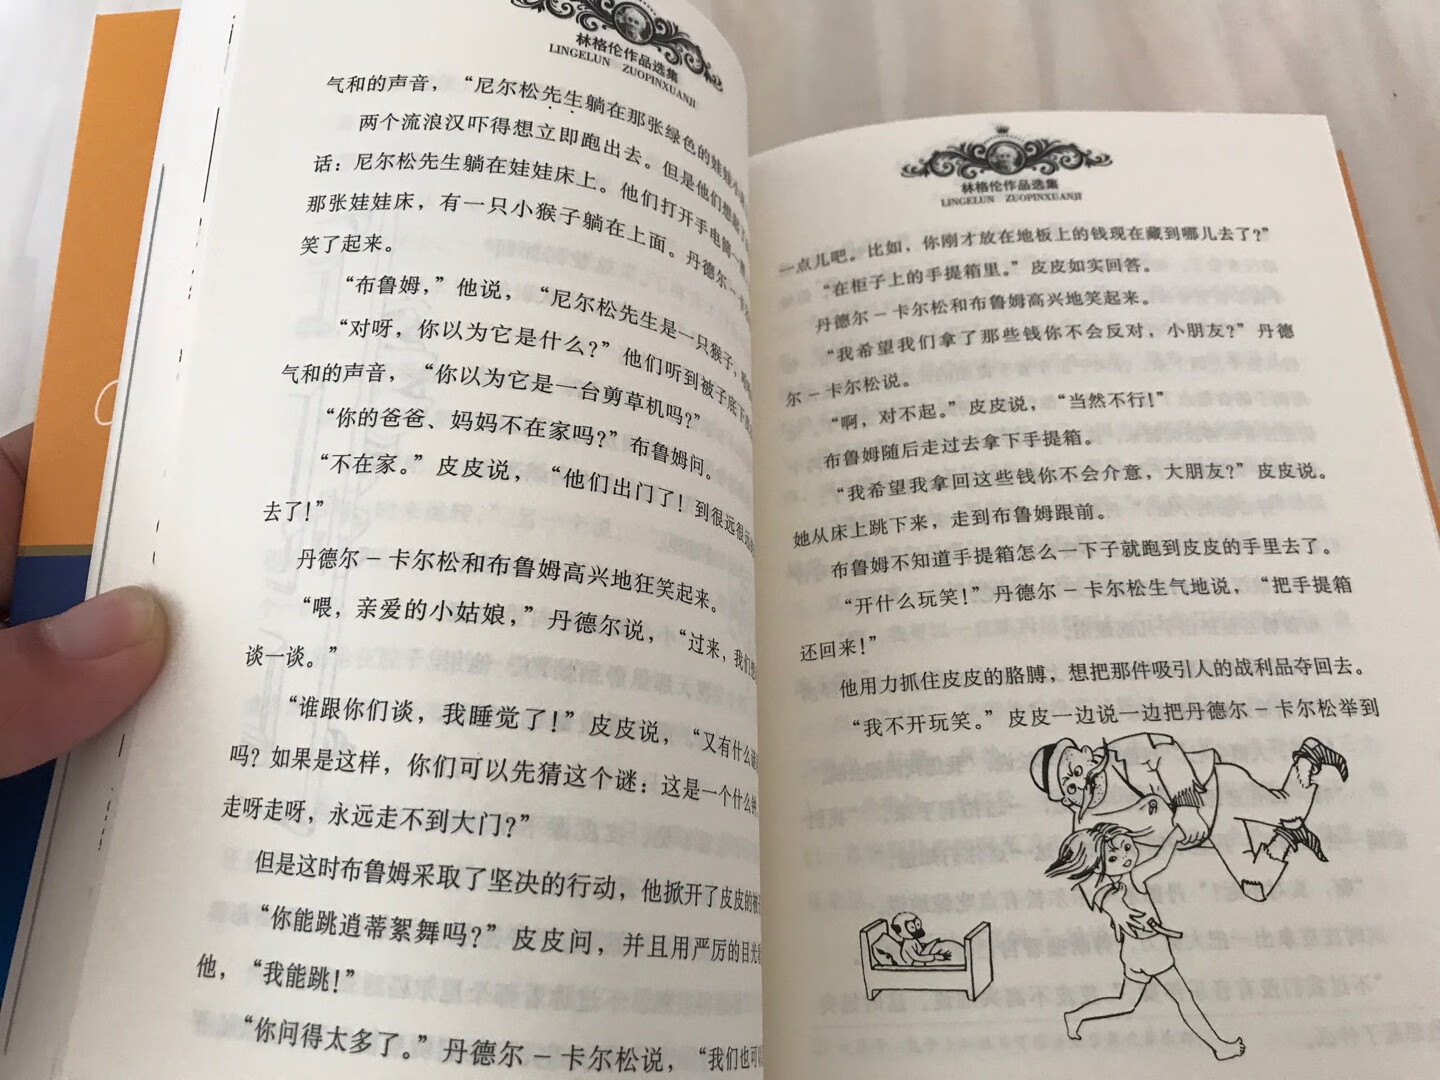 林格伦作品选集
LINGELUN ZUOPINXUANJI
气和的声音，“尼尔松先生躺在那张绿色的娃娃小
两个流浪汉吓得想立即跑出去。但是他们想起了
话：尼尔松先生躺在娃娃床上。他们打开手电筒一
那张娃娃床，有一只小猴子躺在上面。丹德尔－卡
笑了起来。
“布鲁姆，”他说，“尼尔松先生是一只猴子，
“对呀，你以为它是什么？”他们听到被子底下
气和的声音，“你以为它是一台剪草机吗？”
“你的爸爸、妈妈不在家吗？”布鲁姆问。
“不在家。”皮皮说，“他们出门了！到很远很远
去了！”
丹德尔－卡尔松和布鲁姆高兴地狂笑起来。
“喂，亲爱的小姑娘，”丹德尔说，“过来，我们
谈一谈。”
“谁跟你们谈，我睡觉了！”皮皮说，“又有什么谜
吗？如果是这样，你们可以先猜这个谜：这是一个什么钟
走呀走呀，永远走不到大门？”
但是这时布鲁姆采取了坚决的行动，他掀开了皮皮的被
“你能跳逍蒂絮舞吗？”皮皮问，并且用严厉的目光
他，“我能跳！”
“你问得太多了。”丹德尔－卡尔松说，“我们也可
林格伦作品选集
LINGELUN ZUOPINXUANJI
一点儿吧。比如，你刚才放在地板上的钱现在藏到哪儿去了？”
“在柜子上的手提箱里。”皮皮如实回答。
丹德尔－卡尔松和布鲁姆高兴地笑起来。
“我希望我们拿了那些钱你不会反对，小朋友？”丹德
尔－卡尔松说。
“啊，对不起。”皮皮说，“当然不行！”
布鲁姆随后走过去拿下手提箱。
“我希望我拿回这些钱你不会介意，大朋友？”皮皮说。
她从床上跳下来，走到布鲁姆跟前。
布鲁姆不知道手提箱怎么一下子就跑到皮皮的手里去了。
“开什么玩笑！”丹德尔－卡尔松生气地说，“把手提箱
还回来！”
他用力抓住皮皮的胳膊，想把那件吸引人的战利品夺回去。
“我不开玩笑。”皮皮一边说一边把丹德尔－卡尔松举到